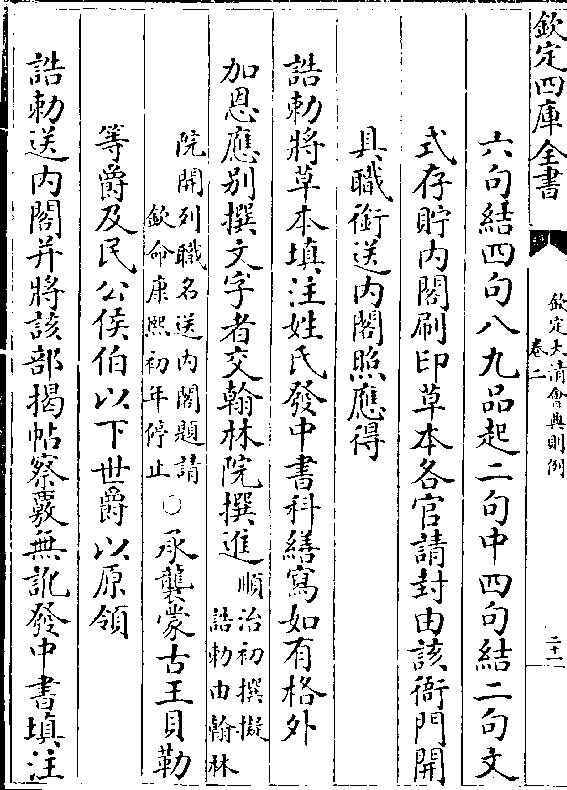 欽定四庫全書
欽定大清會典則例
卷二
二十一
六句結四句八九品起二句中四句結二句文
式存貯内閣刷印草本各官請封由該衙門開
具職銜送内閣照應得
誥勅將草本填注姓氏發中書科繕寫如有格外
加恩應别撰文字者交翰林院撰進順治初撰擬
誥勅由翰林
院開列職名送内閣題請
欽命康熙初年停止○承襲蒙古王貝勒
等爵及民公侯伯以下世爵以原領
誥勅送内閣并將該部揭帖察覈無訛發中書填注